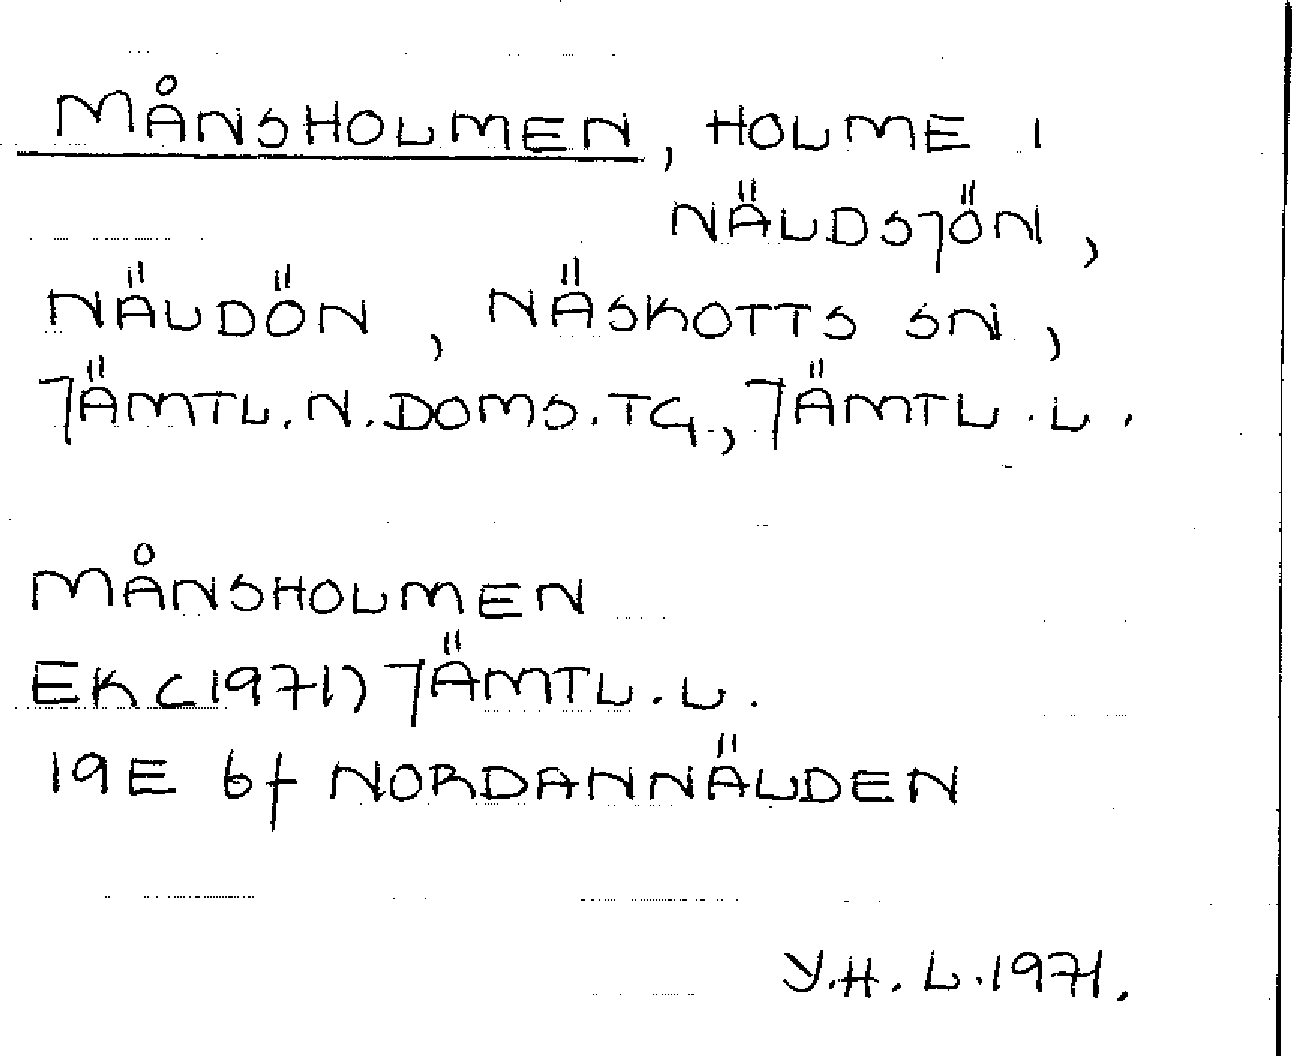 MÅNSHOLMEN, HOLME I
NÄLDSJÖN,
NÄLDÖN, NÄSKOTTS SN,
JÄMTL.N.DOMS.TG., JÄMTL.L.
MÅNSHOLMEN
EK(1971) JÄMTL.L.
19E 6f NORDANNÄLDEN
Y.H.L.1971.